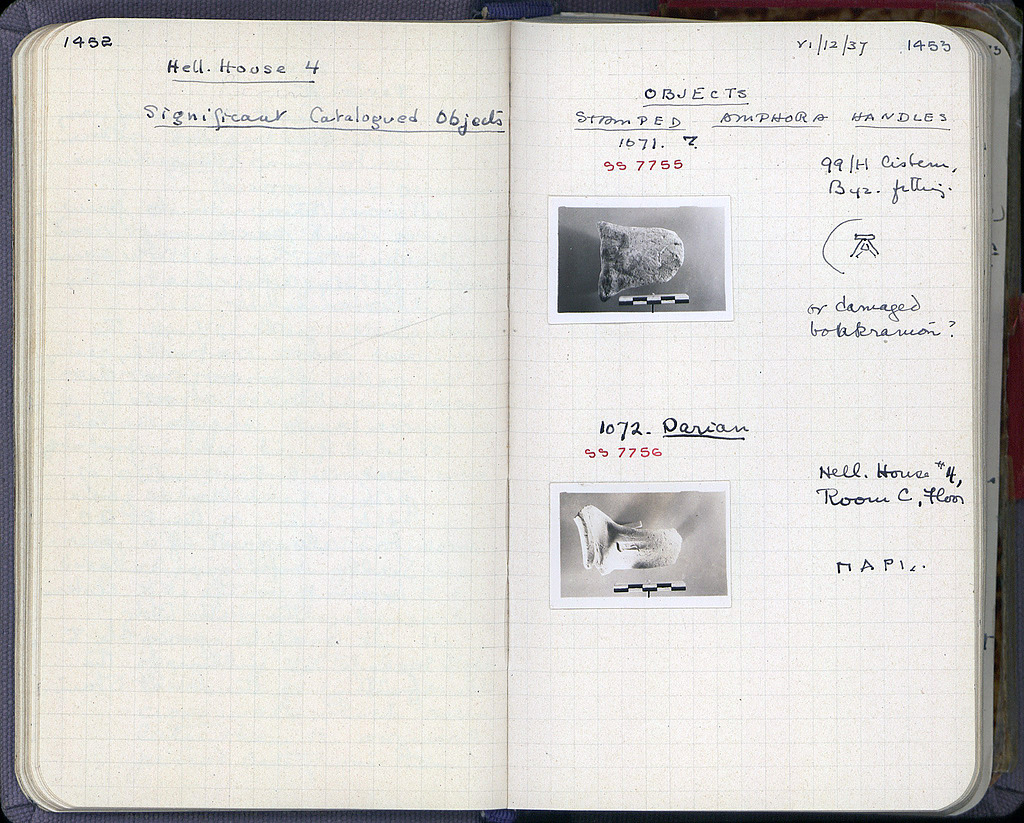 1452
Hell. House 4
Significant Catalogued Objects
VI/12/37 1453
OBJECTS
STAMPED AMPHORA HANDLES
1071. ?
SS 7755
99/H Cistern,
Byz. fitting.
or damaged
boukranion?
1072. Parian
SS 7756
Hell. House #4,
Room C, Floor
ΠΑΡΙ